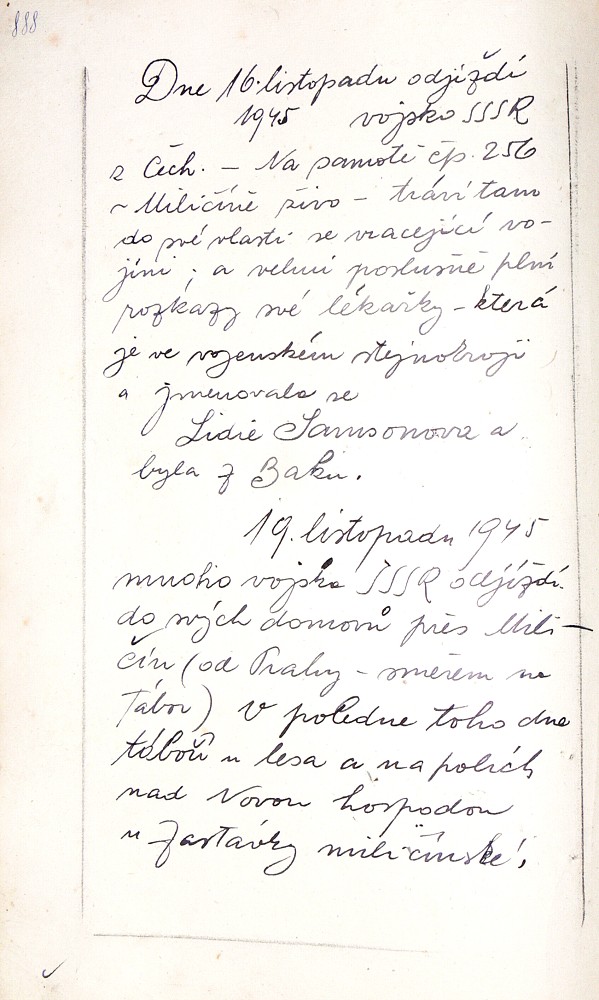 888
Dne 16. listopadu odjíždí
1945 vojsko SSSR
z Čech. – Na samotě čp. 256
v Miličíně živo – tráví tam
do své vlasti se vracející vo-
jíni; a velmi poslušně plní
rozkazy své lékařky – která
je ve vojenském stejnokroji
a jmenovala se
Lidie Samsonova a
byla z Baku.
19. listopadu 1945
mnoho vojska SSSR odjíždí
do svých domovů přes Mili-
čín (od Prahy – směrem na
Tábor) V poledne toho dne
táboří u lesa a na polích
nad Novou hospodou
u zastávky miličínské.